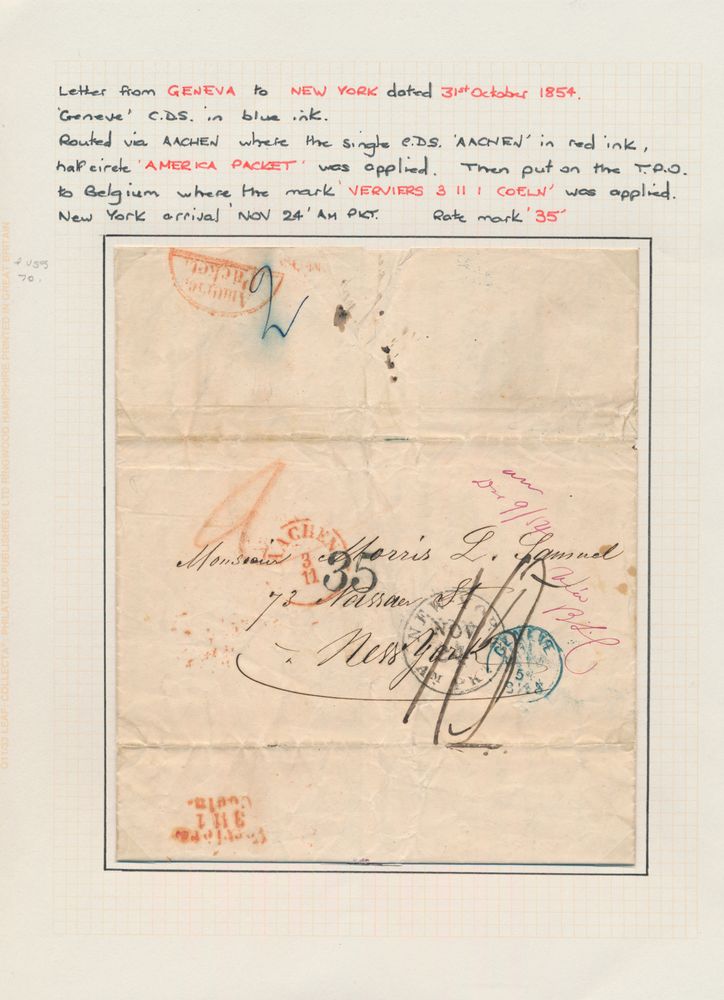 Letter from GENEVA to NEW YORK dated 31st October 1854.
'Geneve' C.D.S. in blue ink.
Routed via AACHEN where the single C.D.S. 'AACHEN' in red ink,
half circle 'AMERICA PACKET' was applied. Then put on the T.P.O.
to Belgium where the mark 'VERVIERS 3 11 1 COELN' was applied.
New York arrival 'NOV 24' AM PKT. Rate mark '35'
70.
01133 LEAF: COLLECTA* PHILATELIC PUBLISHERS LTD RINGWOOD HAMPSHIRE PRINTED IN GREAT BRITAIN
Packet
2
AACHEN
3
11
35
Monsieur Morris L. Samuel
73 Nassau St
New York
NEW YORK
NOV
24
AM PKT
GENEVE
Verviers
3 11 1
Coeln.